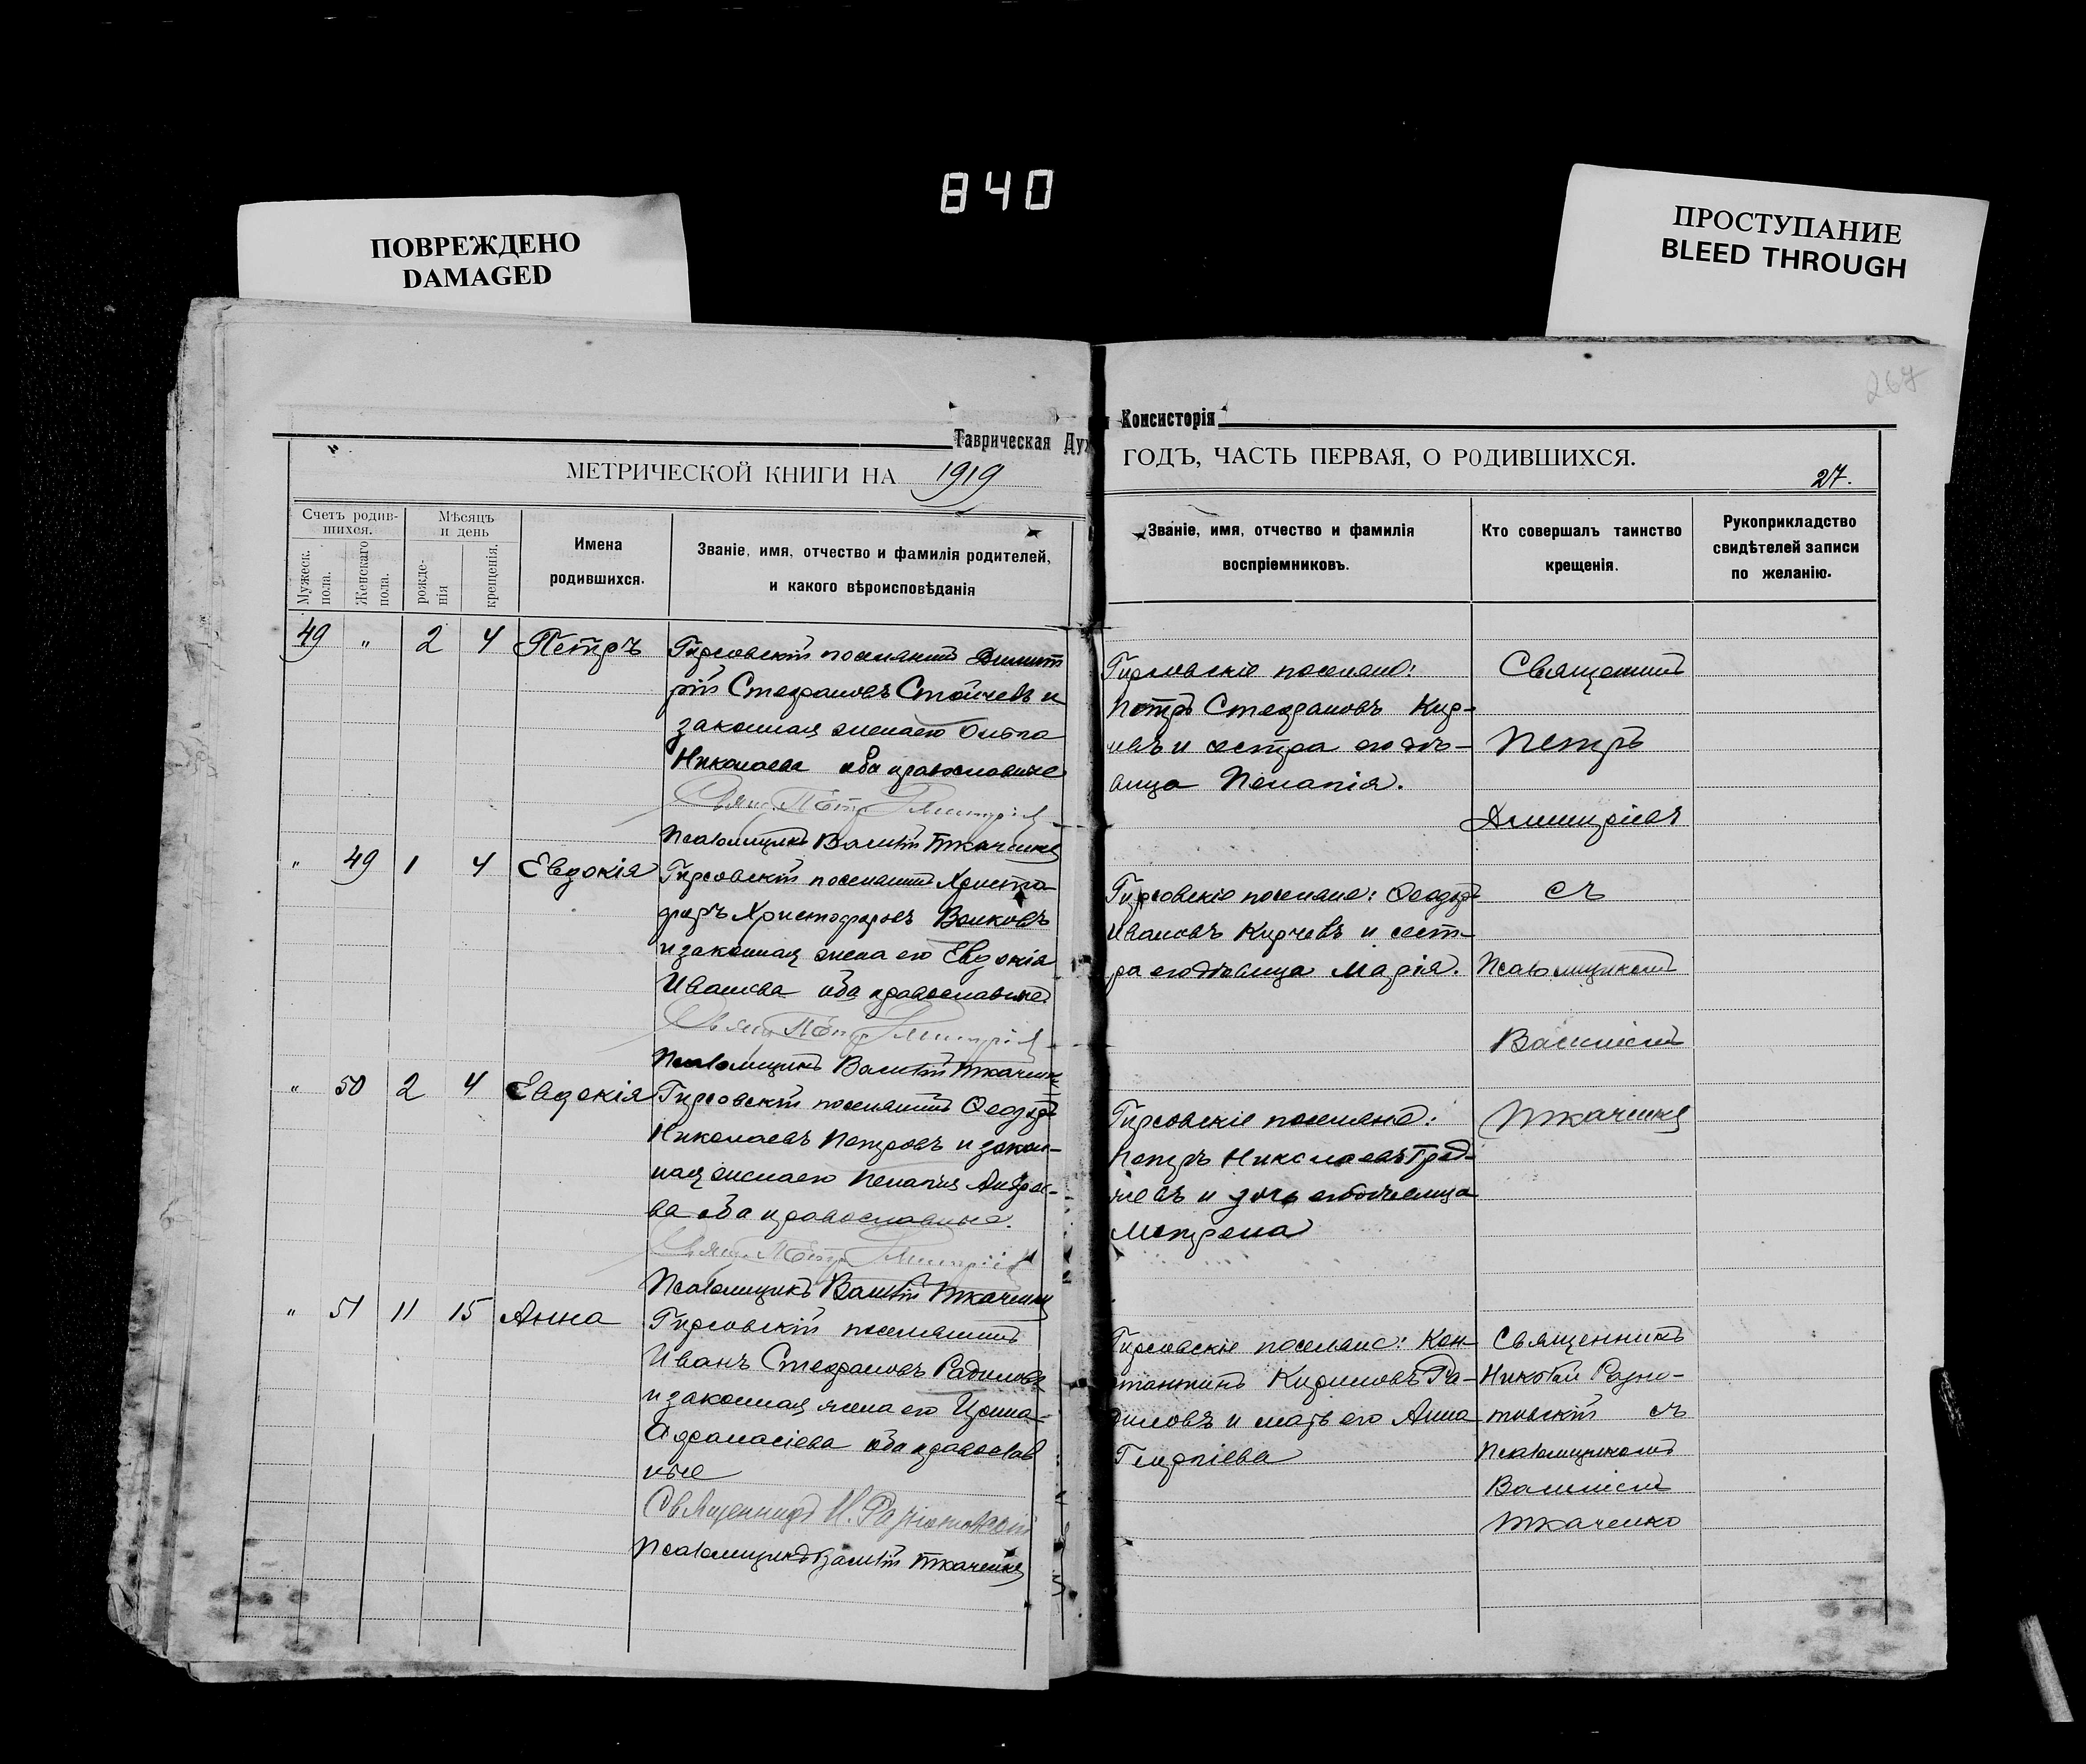 840
ПОВРЕЖДЕНО
DAMAGED
ПРОСТУПАНИЕ
BLEED THROUGH
267
Таврическая Дух
Консисторія
МЕТРИЧЕСКОЙ КНИГИ НА 1919
ГОДЪ, ЧАСТЬ ПЕРВАЯ, О РОДИВШИХСЯ.
27.
Счетъ родив-
шихся.
Мужеск.
пола.
Женскаго
пола.
Мѣсяцъ
и день
рожде-
нія
крещенія.
Имена
родившихся.
Званіе, имя, отчество и фамилія родителей,
и какого вѣроисповѣданія
Званіе, имя, отчество и фамилія
воспріемниковъ.
Кто совершалъ таинство
крещенія.
Рукоприкладство
свидѣтелей записи
по желанію.
49 " 2 4 Петръ
Гирсовскій поселянинъ Димит
рій Стефановъ Стойчевъ и
законная жена его Ольга
Николаева оба православные
Свящ. Петр Димитріев
Псаломщикъ Василій Ткаченко
Гирсовскіе поселяне:
Петръ Стефановъ Кир-
чевъ и сестра его дѣ-
вица Пелагія.
" 49 1 4 Евдокія
Гирсовскій поселянинъ Христо
форъ Христофоровъ Волковъ
и законная жена его Евдокія
Иванова оба православные
Свящ. Петр Димитріев
Псаломщикъ Василій Ткаченко
Гирсовскіе поселяне: Феодоръ
Ивановъ Кирчевъ и сест-
ра его дѣвица Марія.
" 50 2 4 Евдокія
Гирсовскій поселянинъ Феодоръ
Николаевъ Петровъ и закон-
ная жена его Пелагія Андрее-
ва оба православные.
Свящ. Петр Димитріев
Псаломщикъ Василій Ткаченко
Гирсовскіе поселяне:
Петръ Николаевъ Град-
чевъ и дочь его дѣвица
Матрена
Священникъ
Петръ
Димитріевъ
съ
Псаломщикомъ
Василіемъ
Ткаченко
" 51 11 15 Анна
Гирсовскій поселянинъ
Иванъ Стефановъ Радиловъ
и законная жена его
Афанасіева оба православ
ные
Священникъ Н.
Псаломщикъ Василій Ткаченко
Гирсовскіе поселяне: Кон-
стантинъ Кириловъ Ра-
диловъ и мать его Анна
Георгіева
Священникъ
Николай
съ
Псаломщикомъ
Василіемъ
Ткаченко